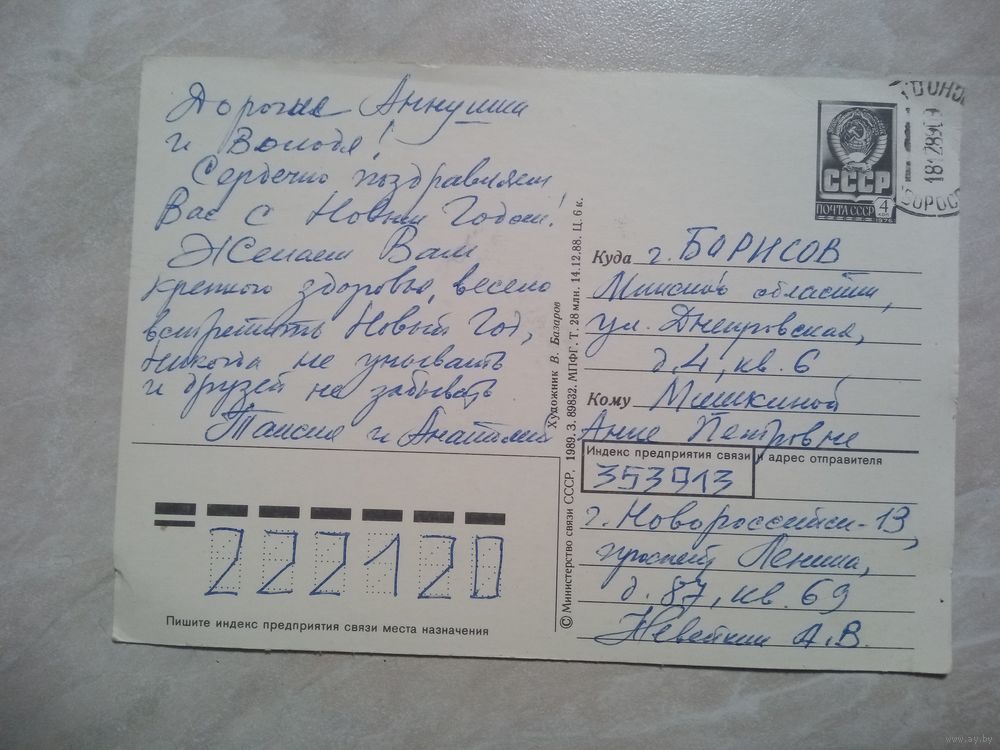 Дорогие Аннушка
и Володя!
Сердечно поздравляем
Вас с Новым Годом!
Желаем Вам
крепкого здоровья, весело
встретить Новый Год,
никогда не унывать
и друзей не забывать
Таисия и Анатолий
СССР
ПОЧТА СССР
4
КОП
1976
181289
Куда г. БОРИСОВ
Минской области,
ул. Днепровская,
д. 4, кв. 6
Кому Мишкиной
Анне Петровне
Индекс предприятия связи и адрес отправителя
353913
г. Новороссийск-13,
проспект Ленина,
д. 87, кв. 69
А. В.
Художник В. Базаров
© Министерство связи СССР, 1989. З. 89832. МПФГ. Т. 28 млн. 14.12.88. Ц. 6 к.
222120
Пишите индекс предприятия связи места назначения
www.ay.by